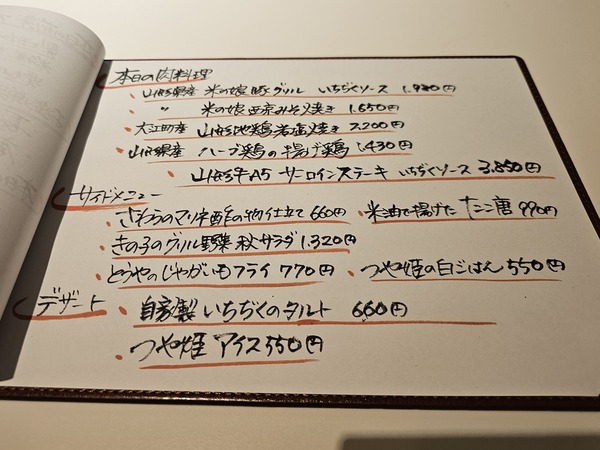 本日の肉料理
・山形県産 米の娘豚グリル いちぢくソース 1,980円
・ 〃 米の娘西京みそ焼き 1,650円
・大江町産 山形地鶏岩塩焼き 2,200円
・山形県産 ハーブ鶏の揚げ鶏 1,430円
・山形牛A5 サーロインステーキ いちぢくソース 3,850円
サイドメニュー
・さわらのマリネ酢の物仕立て 660円 ・米油で揚げた たこ唐 990円
・きの子のグリル野菜 秋サラダ 1,320円
・とうやのじゃがいもフライ 770円 ・つや姫の白ごはん 550円
デザート ・自家製 いちぢくのタルト 660円
・つや姫 アイス 550円